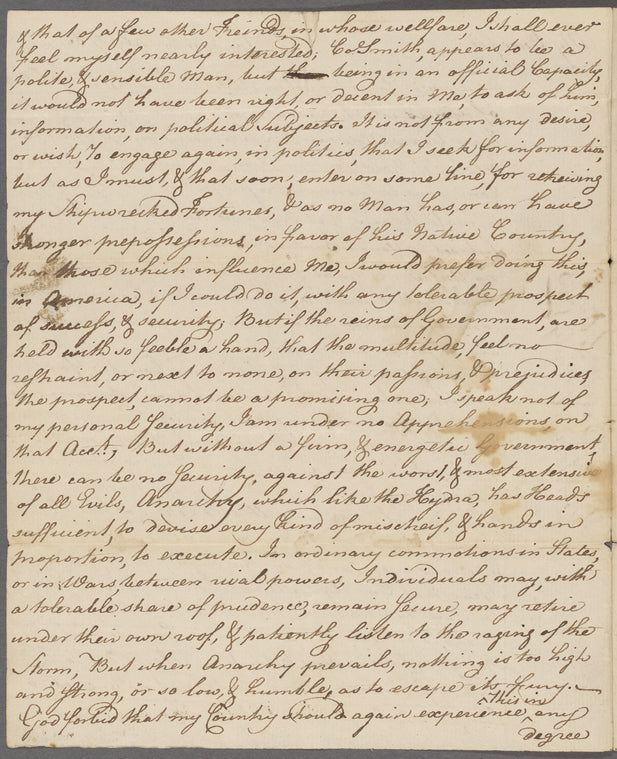 & that of a few other Friends, in whose wellfare, I shall ever
feel myself nearly interested; Col Smith, appears to be a
polite, & sensible Man, but being in an official Capacity,
it would not have been right, or decent in Me, to ask of him,
information, on political Subjects. It is not from any desire,
or wish, to engage again, in politics, that I seek for information,
but as I must, & that soon, enter on some line, for retrieving
my Shipwrecked Fortunes, & as no Man has, or can have
stronger prepossessions, in favor of his Native Country,
than those which influence Me, I would prefer doing this,
in America, if I could do it, with any tolerable prospect
of success, & security; But if the reins of Government, are
held with so feeble a hand, that the multitude, feel no
restraint, or next to none, on their passions, & prejudices,
the prospect, cannot be a promising one; I speak not of
my personal Security, I am under no Apprehensions, on
that Acct., But without a firm, & energetic Government,
there can be no Security, against the worst, & most extensive
of all Evils, Anarchy, which like the Hydra, has Heads
sufficient, to devise every kind of mischeif, & hands in
proportion, to execute. In ordinary commotions in States,
or in Wars, between rival powers, Individuals may, with
a tolerable share of prudence, remain secure, may retire
under their own roof, & patiently listen to the raging of the
Storm, But when Anarchy prevails, nothing is too high
and strong, or so low, & humble, as to escape its fury.
God forbid that my Country should again experience this in any
degree